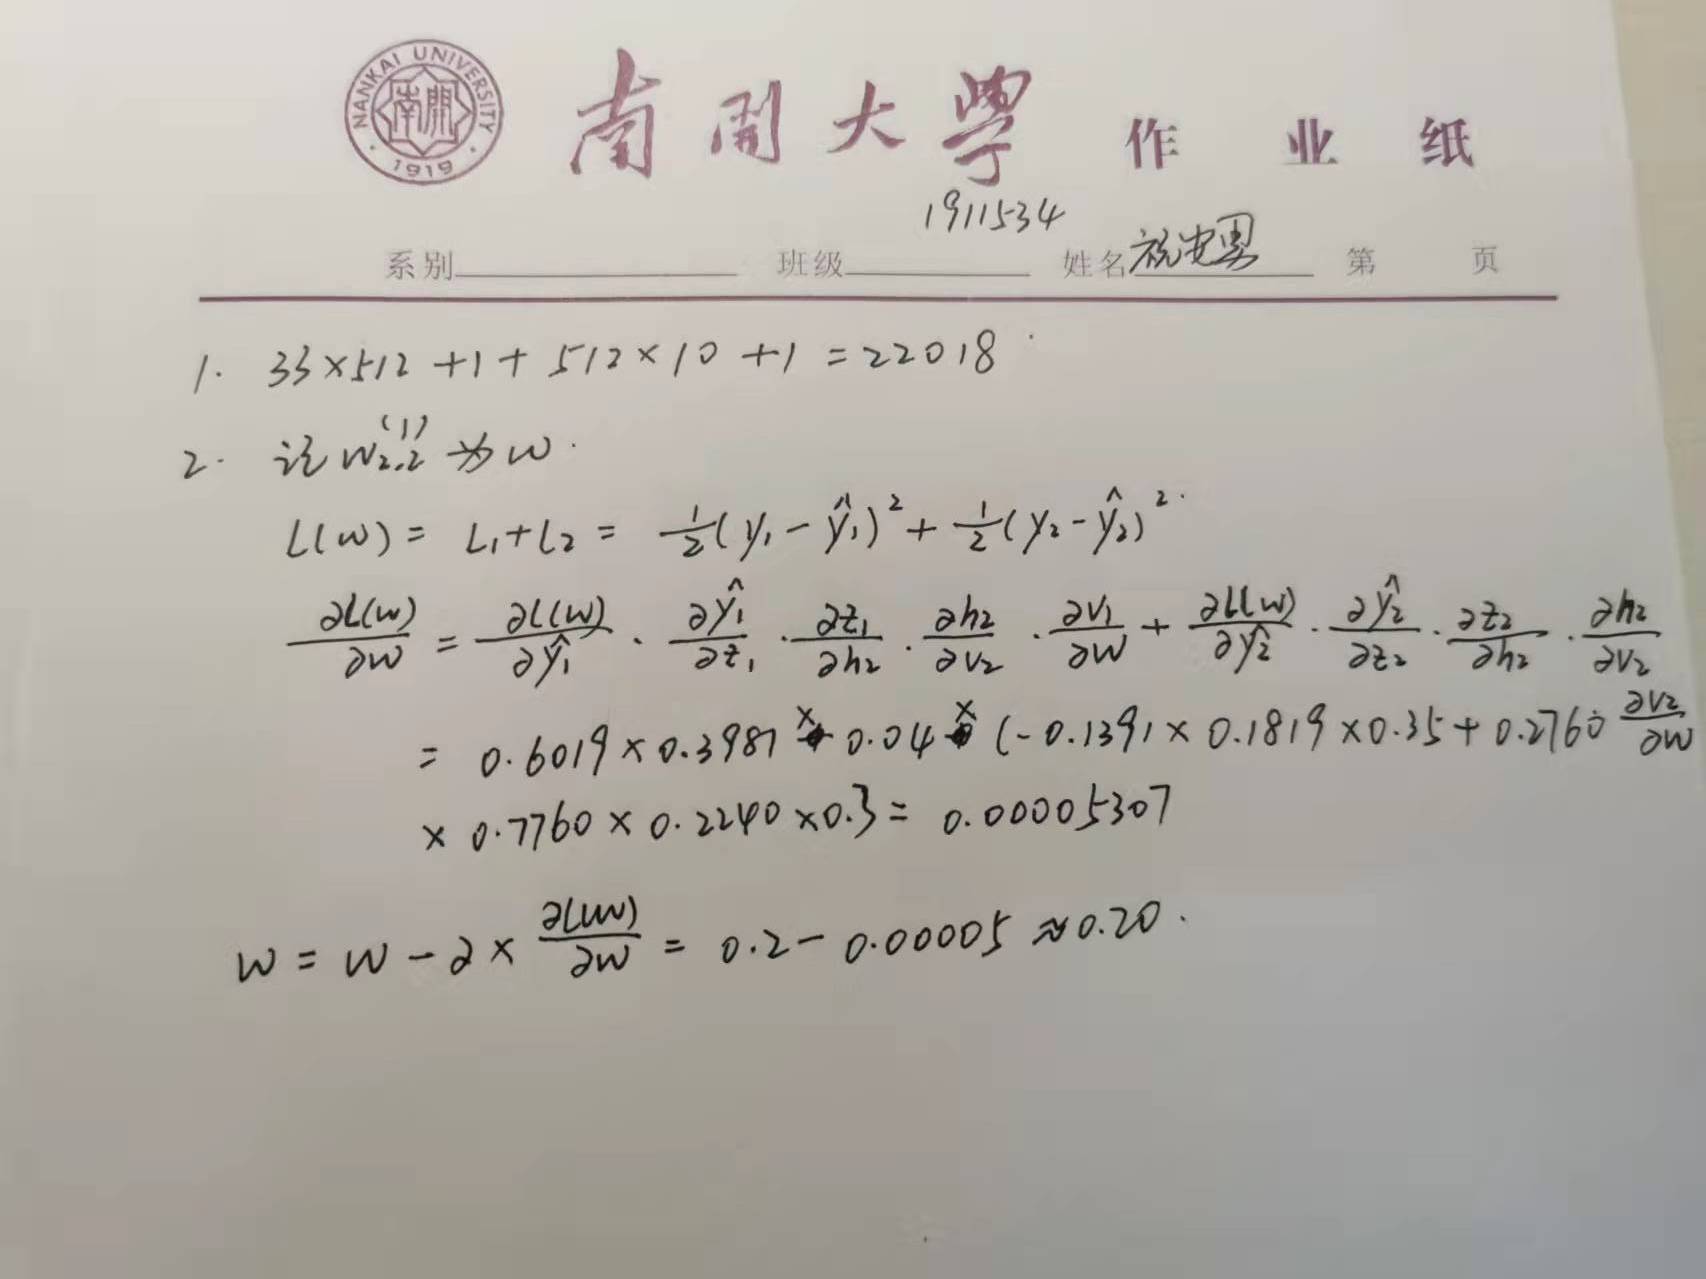 NANKAI UNIVERSITY
南開
· 1919 ·
南开大学 作业纸
1911534
系别 班级 姓名 祝安男 第 页
1. 33×512 +1 + 512×10 +1 = 22018
2. 记 W₂,₂⁽¹⁾ 为 w.
L(w) = L₁+L₂ = 1/2(y₁-ŷ₁)² + 1/2(y₂-ŷ₂)².
∂L(w)/∂w = ∂L(w)/∂ŷ₁ · ∂ŷ₁/∂z₁ · ∂z₁/∂h₂ · ∂h₂/∂v₂ · ∂v₁/∂w + ∂L(w)/∂ŷ₂ · ∂ŷ₂/∂z₂ · ∂z₂/∂h₂ · ∂h₂/∂v₂
= 0.6019 × 0.3981 × 0.04 × (-0.1391 × 0.1819 × 0.35 + 0.2760 · ∂v₂/∂w
× 0.7760 × 0.2240 × 0.3 = 0.00005307
w = w - 2 × ∂L(w)/∂w = 0.2 - 0.00005 ≈ 0.20.